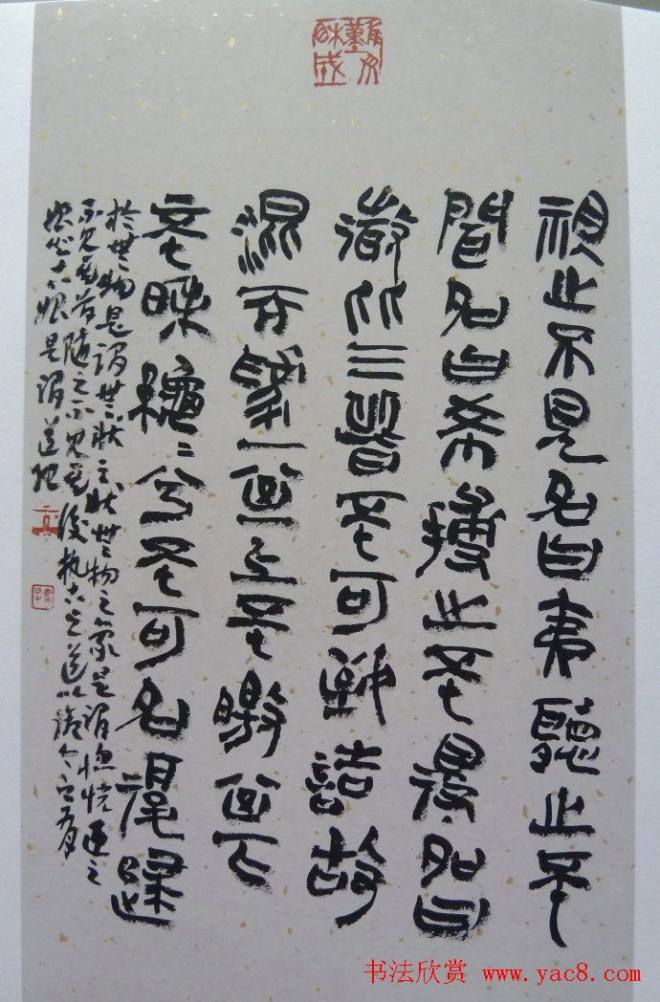 視之不見名曰夷聽之不
聞名曰希搏之不得名曰
微此三皆不可致詰故
混而為一其上不皦其下
不昧繩〻兮不可名復歸
於無物是謂無狀之狀無物之象是謂惚恍迎之
不見其首隨之不見其後執古之道以御今之有
知古始是謂道紀
书法欣赏 www.yac8.com